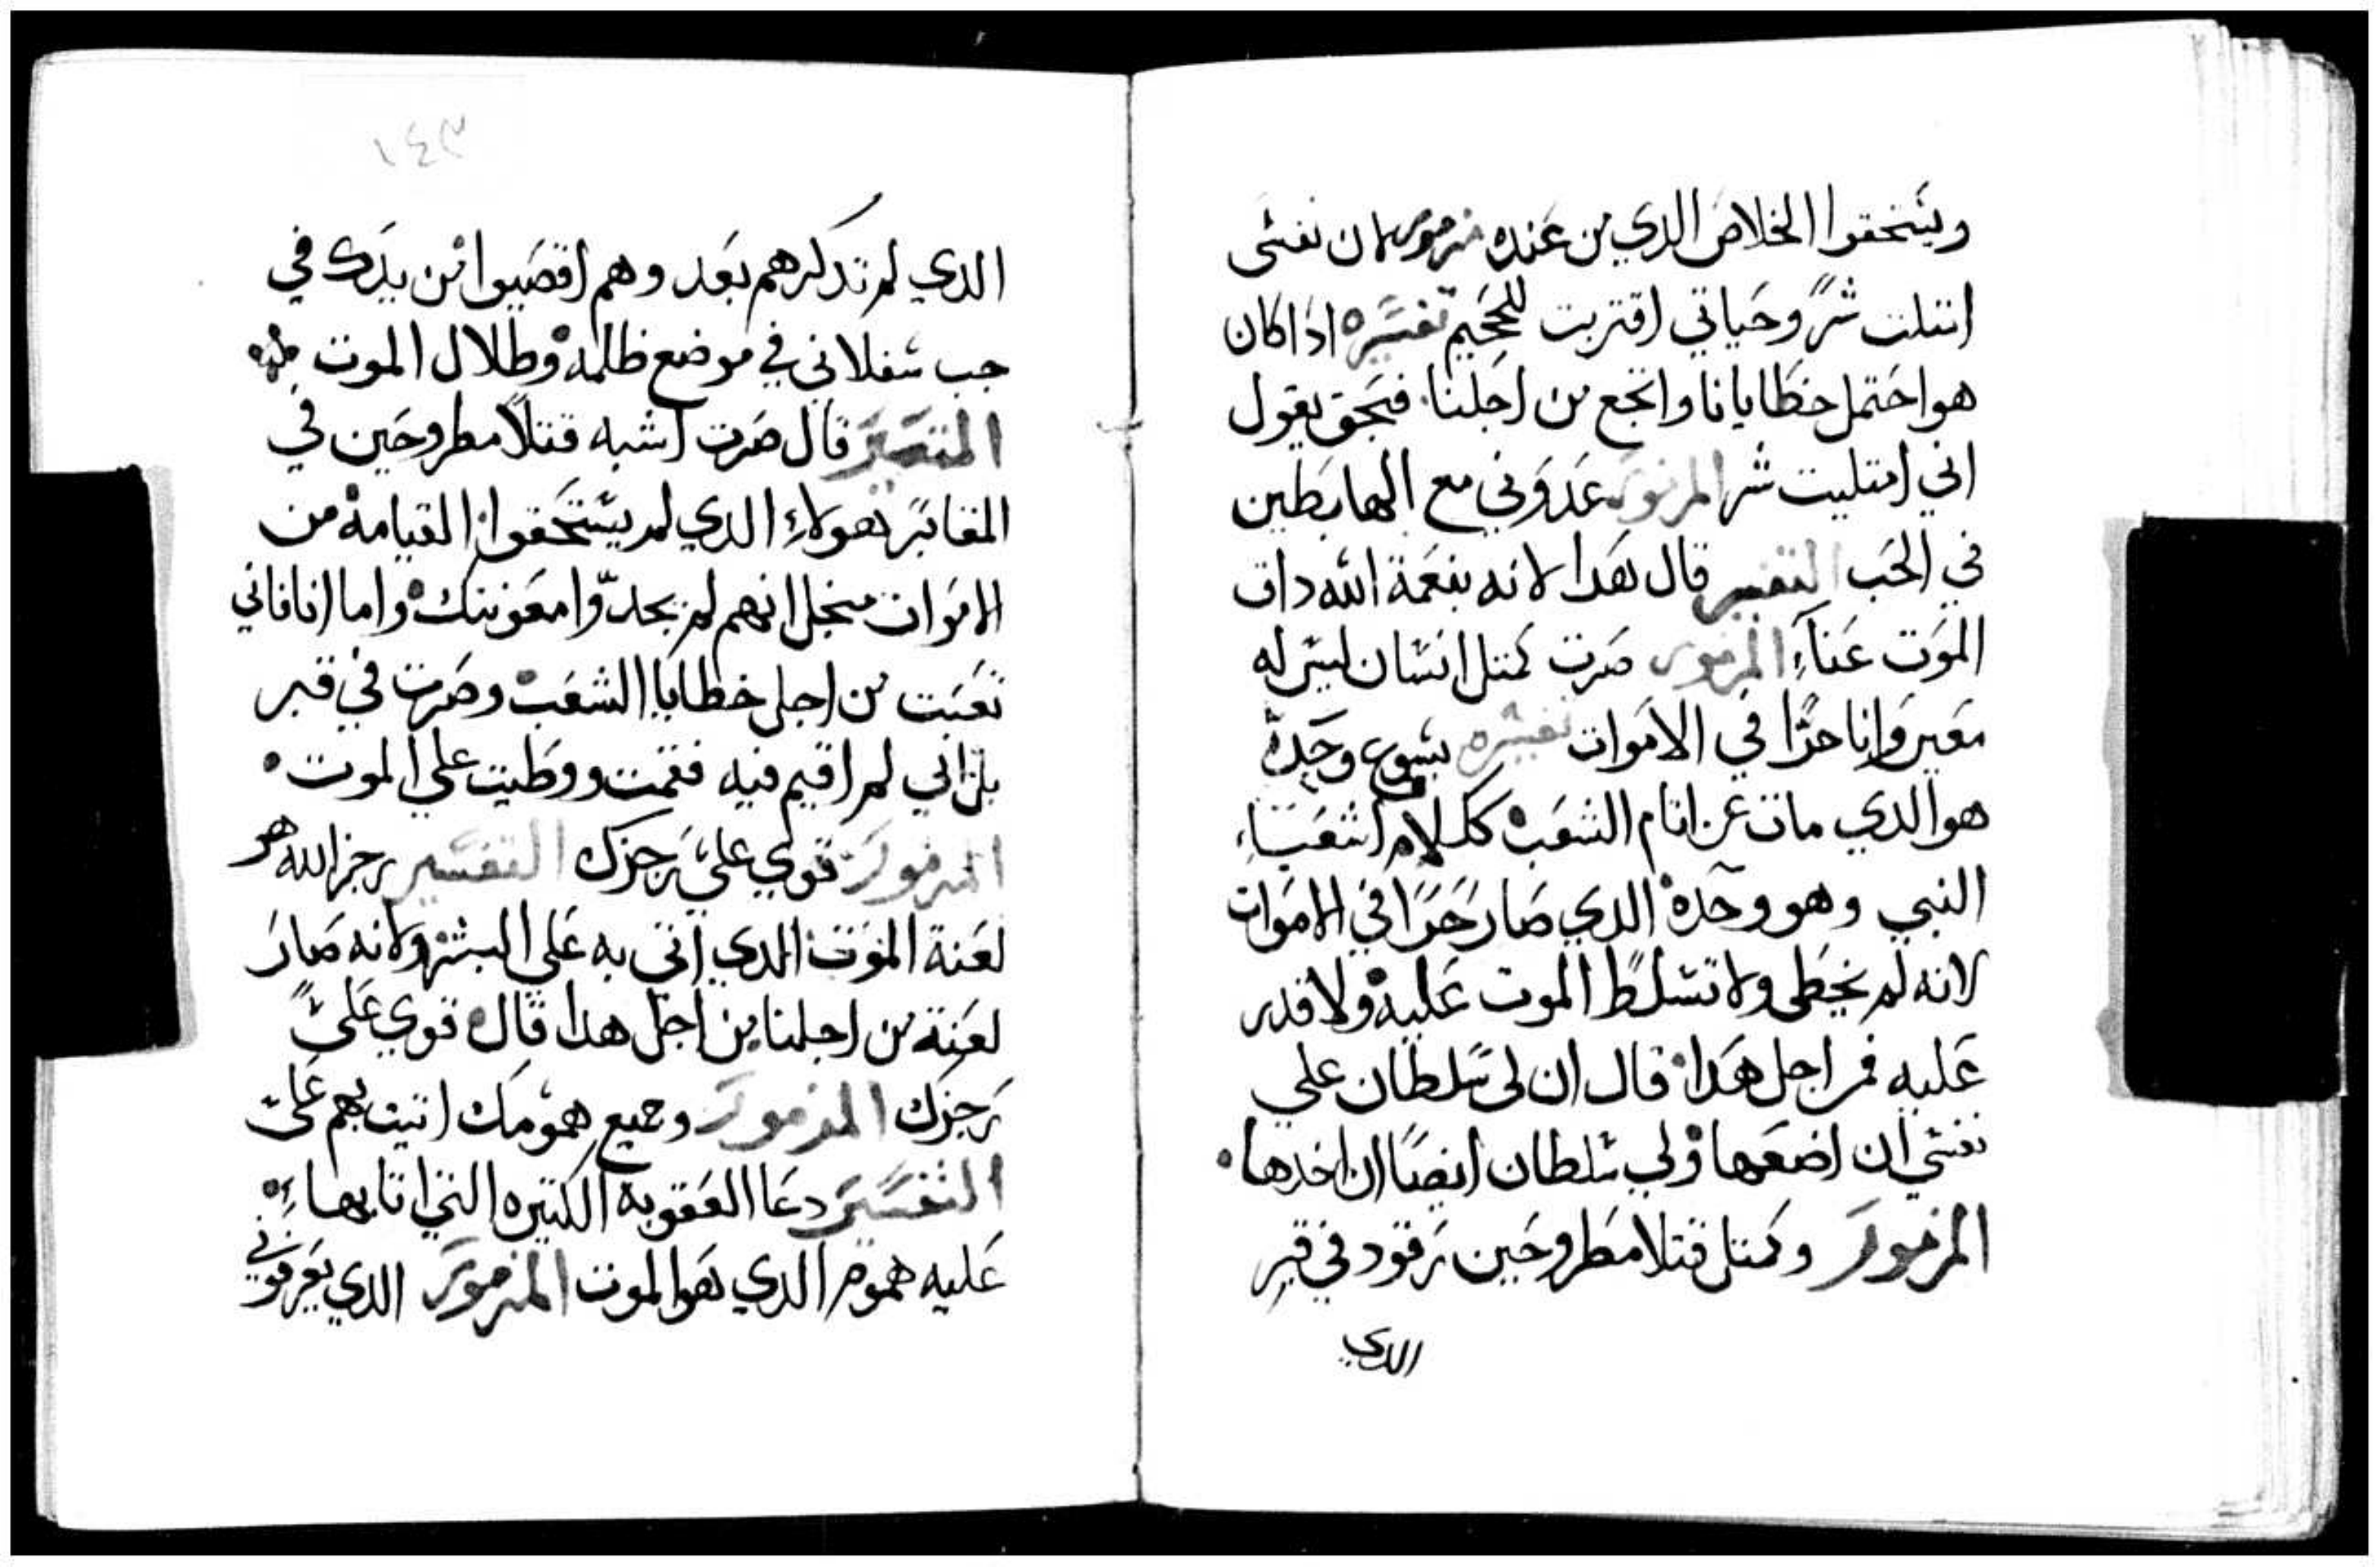 ويستحقوا الخلاص الدي من عنده مزمور لان نفسى
امتلت شرً وحياتي اقتربت للجحيم تفسيره اداكان
هو احتمل خطايانا واتجع من اجلنا فبحق يقول
اني امتليت شر المزمور عدوني مع الهابطين
في الجب التفسير قال هدا لانه بنعمة الله داق
الموت عناءِ المزمور صرت كمتل انسان ليس له
معين وانا حرًا في الاموات تفسيره يسوع وحده
هو الدي مات عن اتام الشعب ككلام اشعياء
النبي وهو وحده الدي صار حرًا في الاموات
لانه لم يخطى ولا تسلط الموت عليه ولا قدر
عليه فمن اجل هدا قال ان لى سلطان علي
نفسي ان اضعها ولي سلطان ايضًا ان اخدها
المزمور وكمتل قتلا مطروحين رقود في قبر
الدي
١٤٣
الدي لم تدكرهم بعد وهم اقصيوا من يدك في
جب سفلاني في موضع ظلمه وظلال الموت
التفسير قال صرت اشبه قتلاً مطروحين في
المقابر هولاءِ الدي لم يستحقوا القيامة من
الاموات منجل انهم لم يجدّوا معونتك واما انا فاني
تعبت من اجل خطايا الشعب وصرت في قبر
بل اني لم اقيم فيه فقمت ووطيت علي الموت
المزمور قوي عليّ رجزك التفسير رجز الله هو
لعنة الموت الدي اتى به على البشر ولانه صار
لعنة من اجلنا من اجل هدا قال قوي عليّ
رجزك المزمور وجميع همومك اتيت بهم عليّ
التفسير دعا العقوبه الكتيره التي اتا بها
عليه هموم الدي هو الموت المزمور الدي يعرفوني